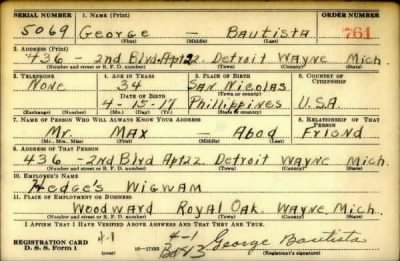 SERIAL NUMBER 1. NAME (Print) ORDER NUMBER
5069 George — Bautista 761
(First) (Middle) (Last)
2. ADDRESS (Print)
436 - 2nd Blvd Apt 22. Detroit Wayne Mich.
(Number and street or R. F. D. number) (Town) (County) (State)
3. TELEPHONE 4. AGE IN YEARS 5. PLACE OF BIRTH 6. COUNTRY OF CITIZENSHIP
None 34 San Nicolas
DATE OF BIRTH (Town or county)
4-15-17 Phillippines U.S.A.
(Exchange) (Number) (Mo.) (Day) (Yr.) (State or country)
7. NAME OF PERSON WHO WILL ALWAYS KNOW YOUR ADDRESS 8. RELATIONSHIP OF THAT PERSON
Mr. Max — Abad Friend
(Mr., Mrs., Miss) (First) (Middle) (Last)
9. ADDRESS OF THAT PERSON
436 - 2nd Blvd Apt 22. Detroit Wayne Mich.
(Number and street or R. F. D. number) (Town) (County) (State)
10. EMPLOYER'S NAME
Hedge's Wigwam
11. PLACE OF EMPLOYMENT OR BUSINESS
Woodward Royal Oak. Wayne, Mich.
(Number and street or R. F. D. number) (Town) (County) (State)
I AFFIRM THAT I HAVE VERIFIED ABOVE ANSWERS AND THAT THEY ARE TRUE.
REGISTRATION CARD
D. S. S. Form 1 (over) 4-1 George Bautista